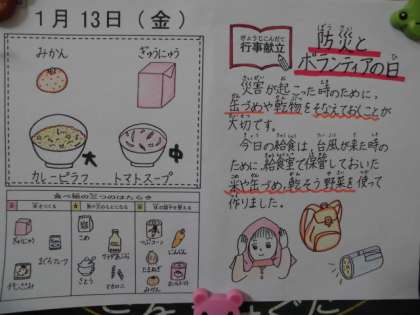 1月13日(金)
みかん
ぎゅうにゅう
カレーピラフ
大
トマトスープ
中
食べ物の三つのはたらき
ぎゅうにゅう
まぐろフレーク
こめ
さとう
にんじん
たまねぎ
みかん
ぎょうじこんだて
行事献立
ぼうさい
防災と
ボランティアの日
災害が起こった時のために、
缶づめや乾物をそなえておくことが
大切です。
今日の給食は、台風が来た時の
ために、給食室で保管しておいた
米や缶づめ、乾そう野菜を使って
作りました。